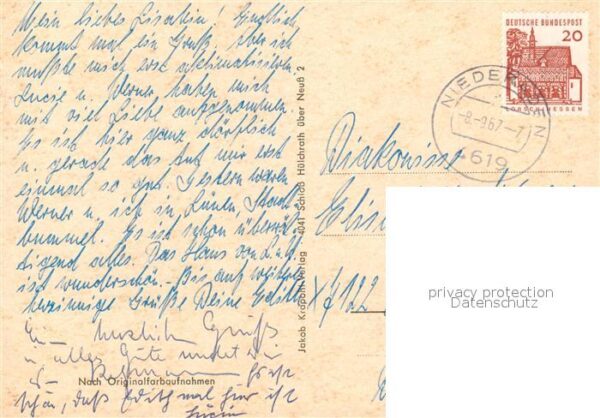 Mein liebes Lisabin! Endlich
kommt mal ein Gruß, aber ich
mußte mich erst akklimatisieren.
Lucie u. Werner haben mich
mit viel Liebe aufgenommen.
Es ist hier ganz dörflich
u. gerade das tut mir erst
einmal so gut. Gestern waren
Werner u. ich in Lünen, Stadt-
bummel. Es ist schon überwäl-
tigend alles. Das Haus von L. u. W.
ist wunderschön. Bis auf weiteres
herzinnige Grüße Deine Edith
herzlich Gruß
u alles Gute
schön, daß Edith mal hier ist
Lucie
Nach Originalfarbaufnahmen
Jakob Krapohl-Verlag 4041 Schloß Hülchrath über Neuß 2
DEUTSCHE BUNDESPOST
20
LORSCH HESSEN
NIEDERADEN
-8.-9.67.-7
4619
Diakonisse
X 7122
privacy protection
Datenschutz